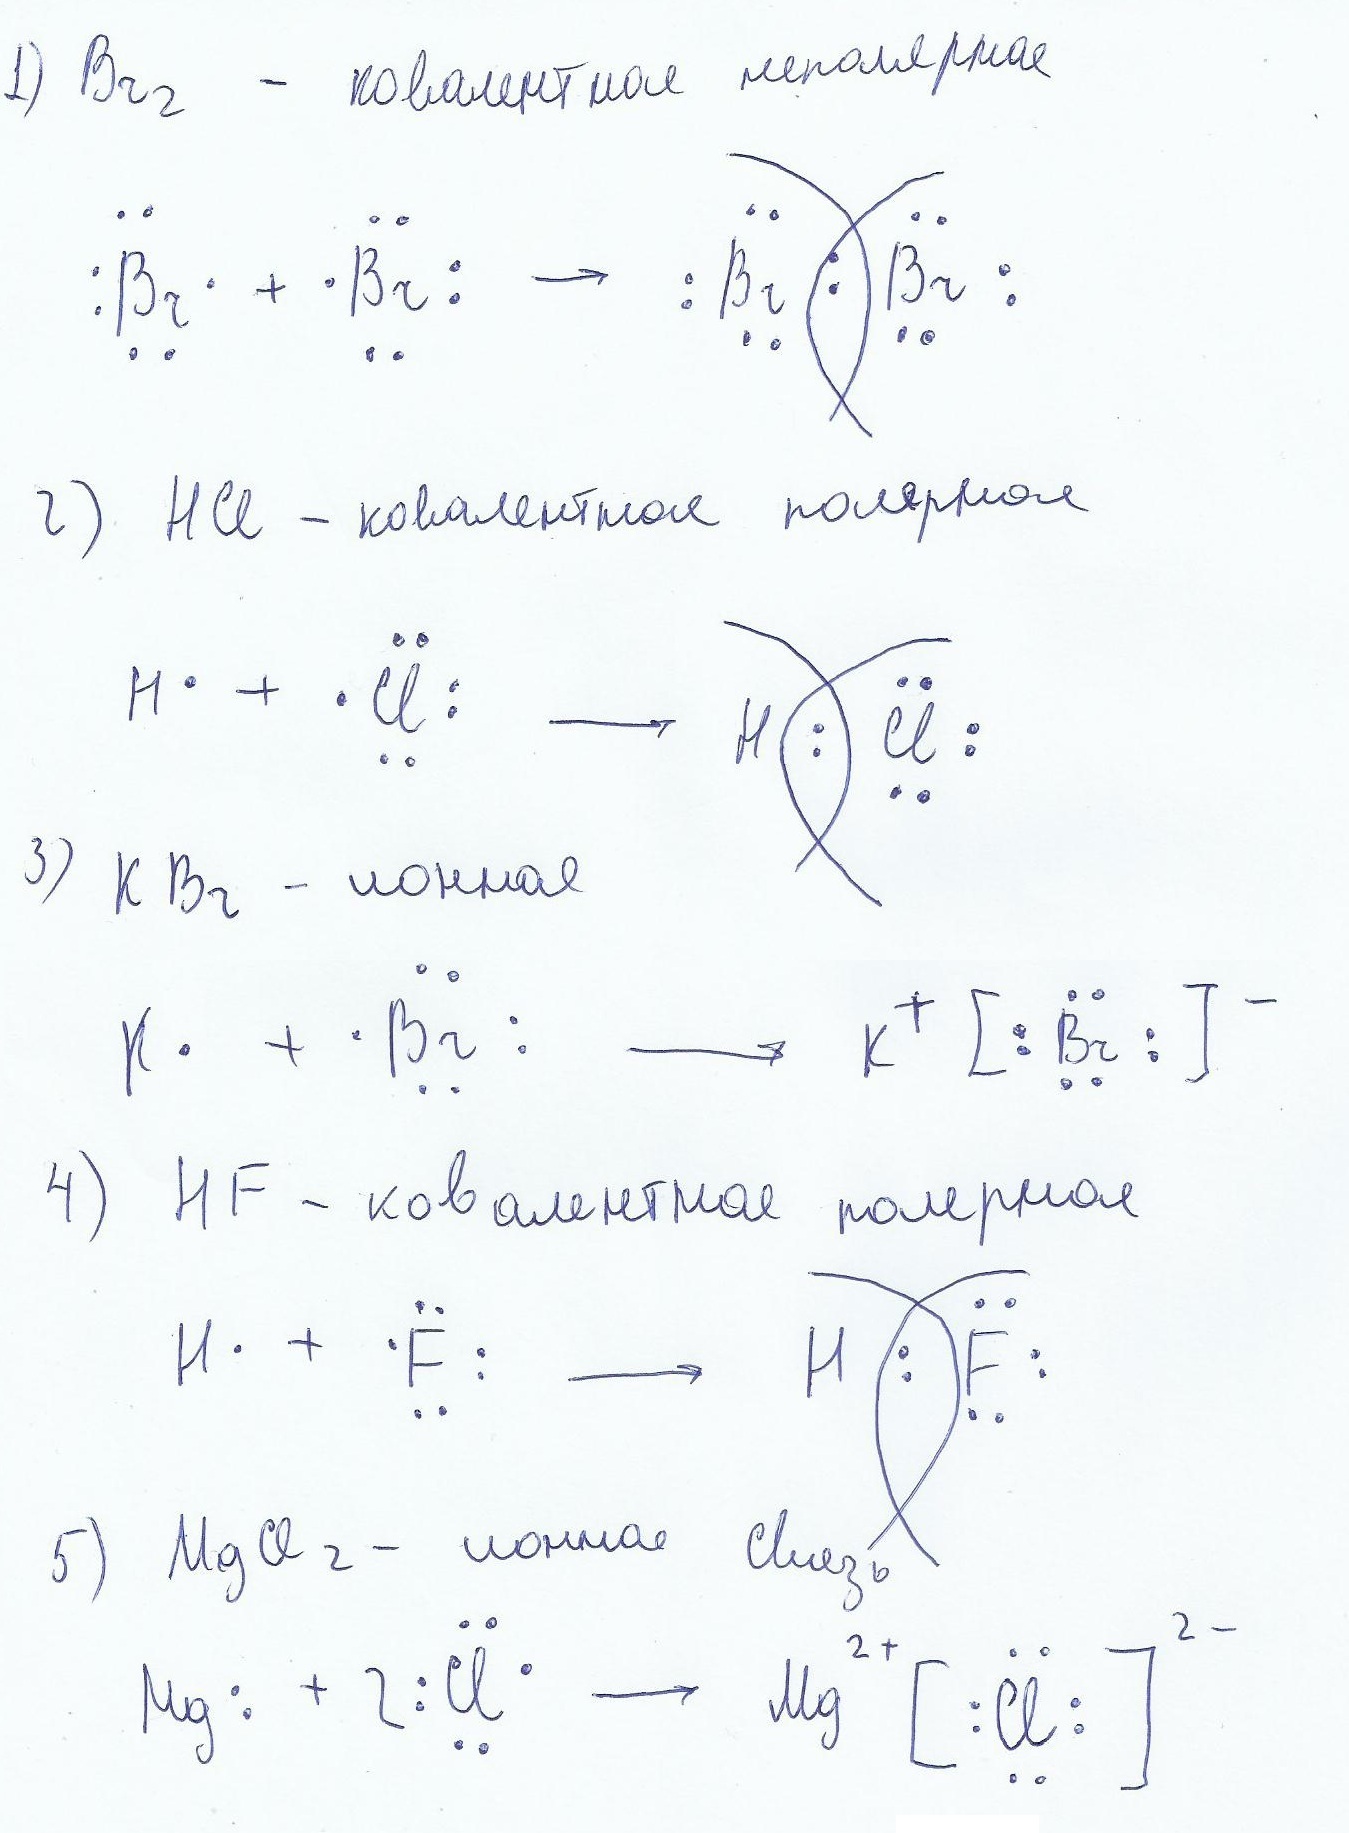 1) Br₂ - ковалентная неполярная
:B̈r· + ·B̈r: → :B̈r:B̈r:
2) HCl - ковалентная полярная
H· + ·Cl: → H:Cl:
3) KBr - ионная
K· + ·Br: → K⁺ [:Br:]⁻
4) HF - ковалентная полярная
H· + ·F: → H:F:
5) MgCl₂ - ионная связь
Mg: + 2:Cl· → Mg²⁺ [:Cl:]²⁻